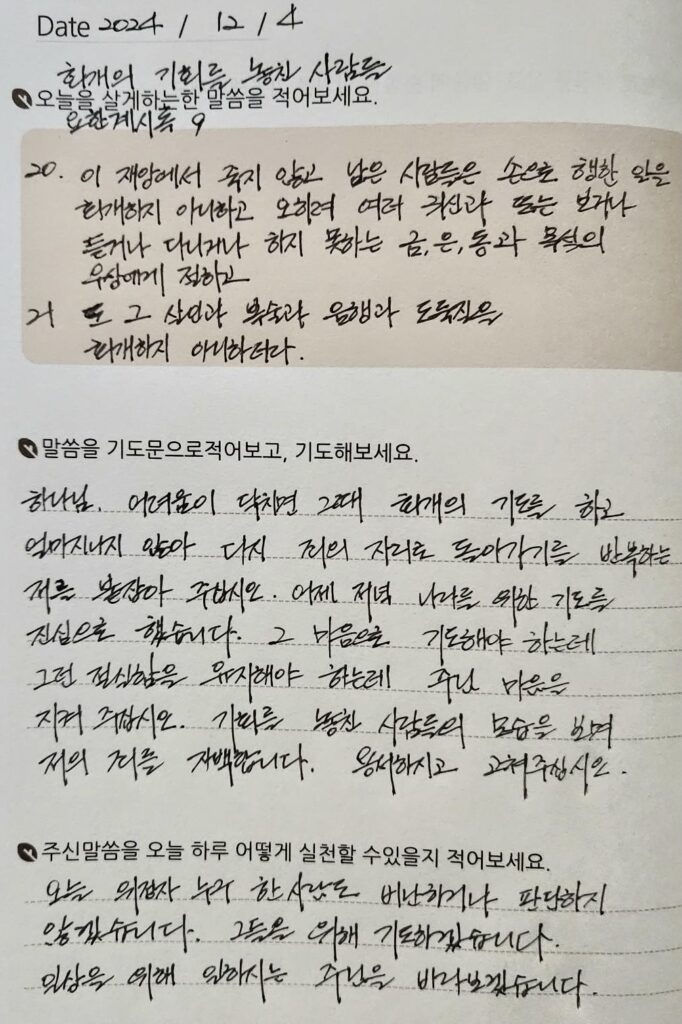 Date 2024 / 12 / 4
회개의 기회를 놓친 사람들
오늘을 살게하는한 말씀을 적어보세요.
요한계시록 9
20. 이 재앙에서 죽지 않고 남은 사람들은 손으로 행한 일을
회개하지 아니하고 오히려 여러 귀신과 또는 보거나
듣거나 다니거나 하지 못하는 금, 은, 동과 목석의
우상에게 절하고
21 또 그 살인과 복술과 음행과 도둑질을
회개하지 아니하더라.
말씀을 기도문으로적어보고, 기도해보세요.
하나님. 어려움이 닥치면 그때 회개의 기도를 하고
얼마지나지 않아 다시 죄의 자리로 돌아가기를 반복하는
저를 붙잡아 주십시오. 어제 저녁 나라를 위한 기도를
진심으로 했습니다. 그 마음으로 기도해야 하는데
그런 절실함을 유지해야 하는데 주님 마음을
지켜 주십시오. 기회를 놓친 사람들의 모습을 보며
저의 죄를 자백합니다. 용서하시고 고쳐주십시오.
주신말씀을 오늘 하루 어떻게 실천할 수있을지 적어보세요.
오늘 위정자 누구 한사람도 비난하거나 판단하지
않겠습니다. 그들을 위해 기도하겠습니다.
위해 일하시는 주님을 바라보겠습니다.